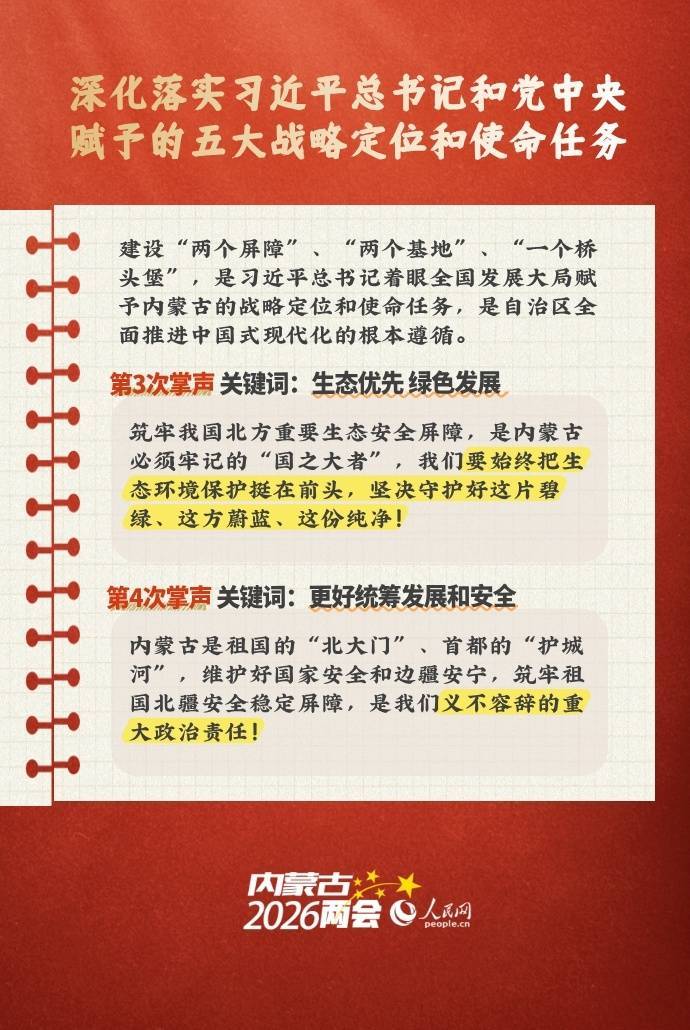 深化落实习近平总书记和党中央
赋予的五大战略定位和使命任务
建设“两个屏障”、“两个基地”、“一个桥
头堡”，是习近平总书记着眼全国发展大局赋
予内蒙古的战略定位和使命任务，是自治区全
面推进中国式现代化的根本遵循。
第3次掌声 关键词：生态优先 绿色发展
筑牢我国北方重要生态安全屏障，是内蒙古
必须牢记的“国之大者”，我们要始终把生
态环境保护挺在前头，坚决守护好这片碧
绿、这方蔚蓝、这份纯净！
第4次掌声 关键词：更好统筹发展和安全
内蒙古是祖国的“北大门”、首都的“护城
河”，维护好国家安全和边疆安宁，筑牢祖
国北疆安全稳定屏障，是我们义不容辞的重
大政治责任！
内蒙古
2026两会
人民网
people.cn